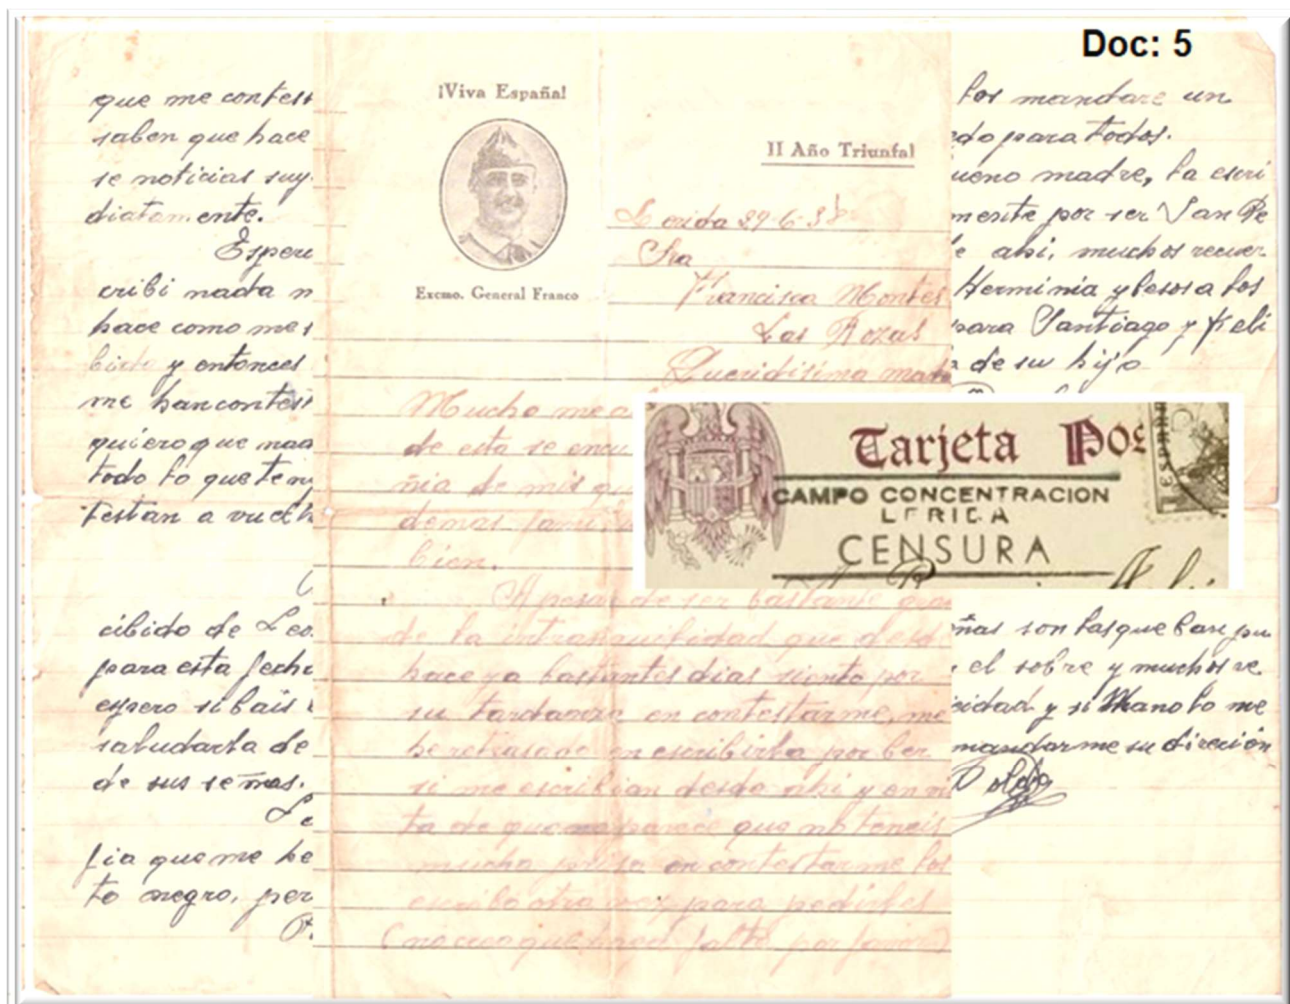 Doc: 5
que me contest
saben que hace
se noticias suy
diatamente.
Esper
cribi nada m
hace como mes
bido y entonces
me han contest
quiero que nad
todo lo que teni
testan a vuelt
cibido de Leo
para esta fecha
espero si bais
saludarla de
de sus señas.
Le
fia que me he
to negro, per
¡Viva España!
Excmo. General Franco
II Año Triunfal
Lerida 29-6-38
Sra
Francisca Montes
Las Rozas
Queridisima madre
Mucho me a
de esta se encu
ñia de mis qu
demas famili
bien.
A pesar de ser bastante gran
de la intranquilidad que desd
hace ya bastantes dias siento por
su tardanza en contestarme, me
he retrasado en escribirla por ber
si me escribian desde ahi y en vi
ta de que me parece que no teneis
mucha prisa en contestarme los
escribo otra vez para pedirles
(no creo que haga falta por favor)
Tarjeta Pos
CAMPO CONCENTRACION
LERIDA
CENSURA
los mandare un
do para todos.
ueno madre, la escri
mente por ser San Pe
e ahi, muchos recuer
Herminia y besos a los
para Santiago y Feli
de su hijo
ñas son las que ban pu
el sobre y muchos re
cidad y si Manolo me
mandarme su direción